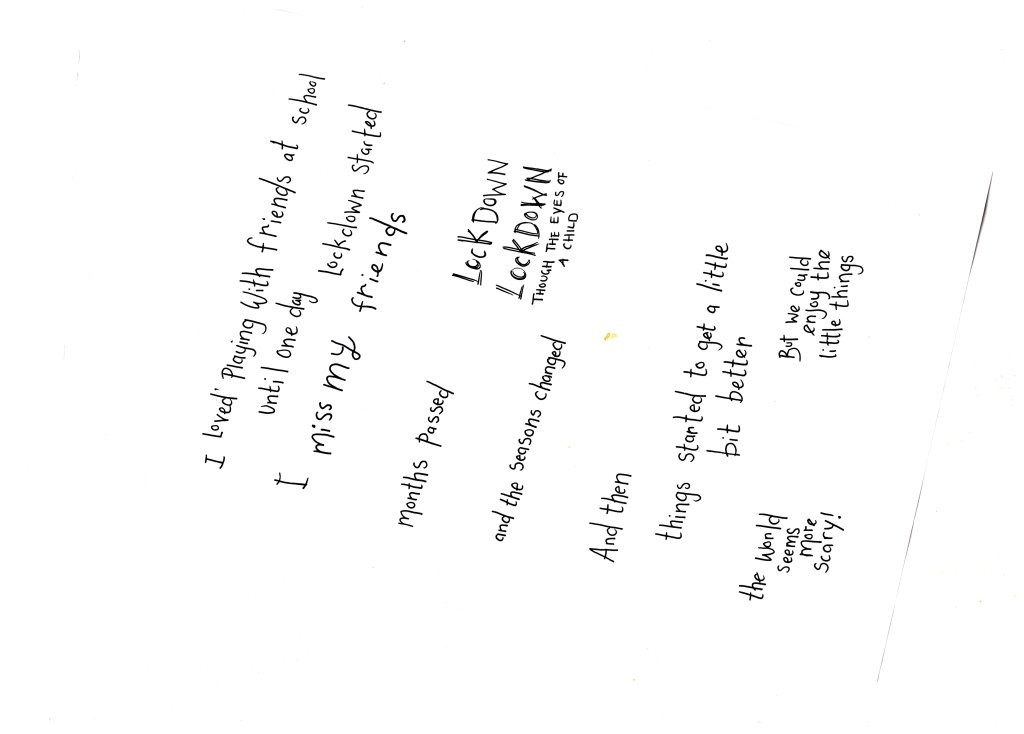 I Loved Playing With friends at school
Until one day Lockdown started
I miss my friends
LOCKDOWN
LOCKDOWN
THOUGH THE EYES OF
A CHILD
months passed
and the seasons changed
And then
things started to get a little
bit better
the World
seems
more
scary!
But we could
enjoy the
little things